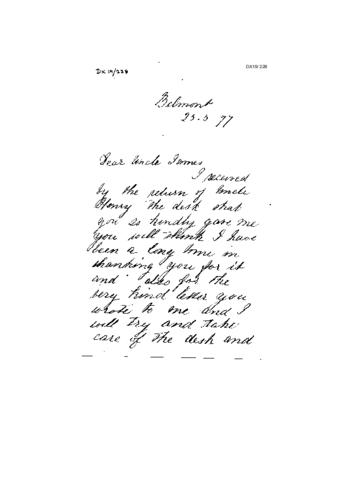 DX19/228
DX19/228
Belmont
23.3 77
Dear Uncle James
I received
by the return of Uncle
Henry the desk that
you so kindly gave me
you will think I have
been a long time in
thanking you for it
and also for the
very kind letter you
wrote to me and I
will try and take
care of the desk and